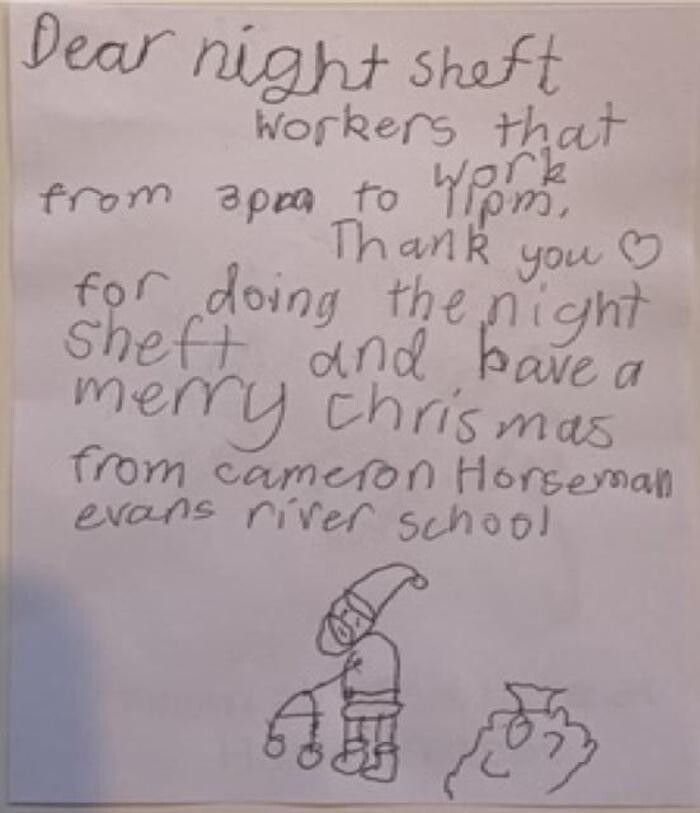 Dear night sheft
workers that
work
from 3pm to 11pm.
Thank you ♡
for doing the night
sheft and have a
merry chrismas
from cameron Horseman
evans river school